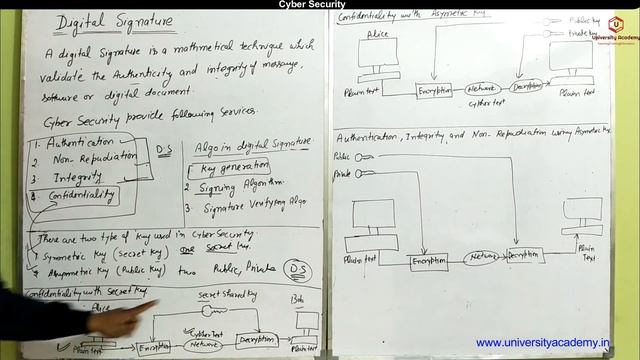 Cyber Security
Digital Signature
A digital Signature is a mathmetical technique which
validate the Authenticity and integrity of message,
software or digital document.
Cyber Security provide following Services.
1. Authentication
2. Non-Repudiation
3. Integrity
4. Confidentiality
D.S
Algo in digital Signature:
1. Key generation
2. Signing Algorithm.
3. Signature Verifying Algo
There are two type of key used in Cyber Security.
Symmetric Key (Secret Key) one Secret Key.
Asymmetric Key (Public Key) two Public, Private
D.S
Confidentiality with Secret Key.
Alice
Secret Shared Key
Bob
Plain text
Encryption
Cypher Text
Network
Decryption
Plain text
Confidentiality with Asymetric Key
Alice
Public Key
Private Key
University Academy
Plain text
Encryption
Network
Cypher text
Decryption
Plain text
Authentication, Integrity, and Non-Repudiation using Asymetric Key
Public
Private
Plain text
Encryption
Network
Decryption
Plain
Text
www.universityacademy.in